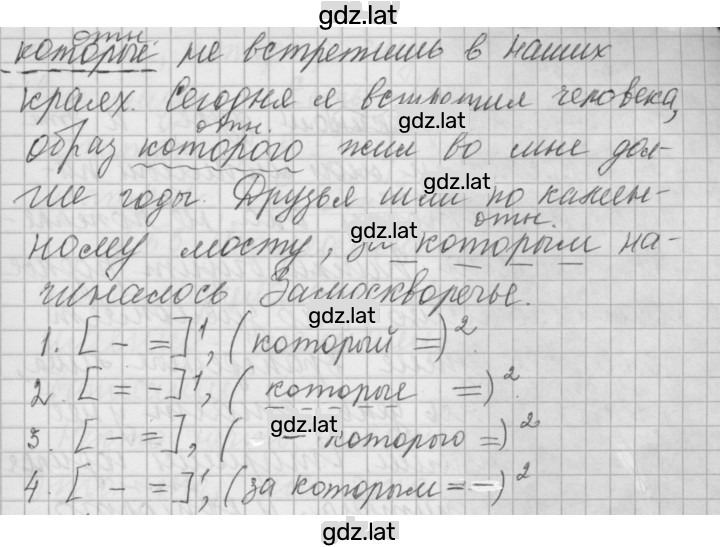 gdz.lat
отн.
которые не встретишь в наших
краях. Сегодня я встретил человека,
gdz.lat
отн.
образ которого жил во мне дол-
gdz.lat
гие годы. Друзья шли по камен-
отн.
ному мосту, за которым на-
gdz.lat
чиналось Замоскворечье.
gdz.lat
1. [ - = ]¹, (который = )².
2. [ = - ]¹, (которые = )².
gdz.lat
3. [ - = ], ( - которого = )²
4. [ - = ]¹, (за которым = - )²
gdz.lat